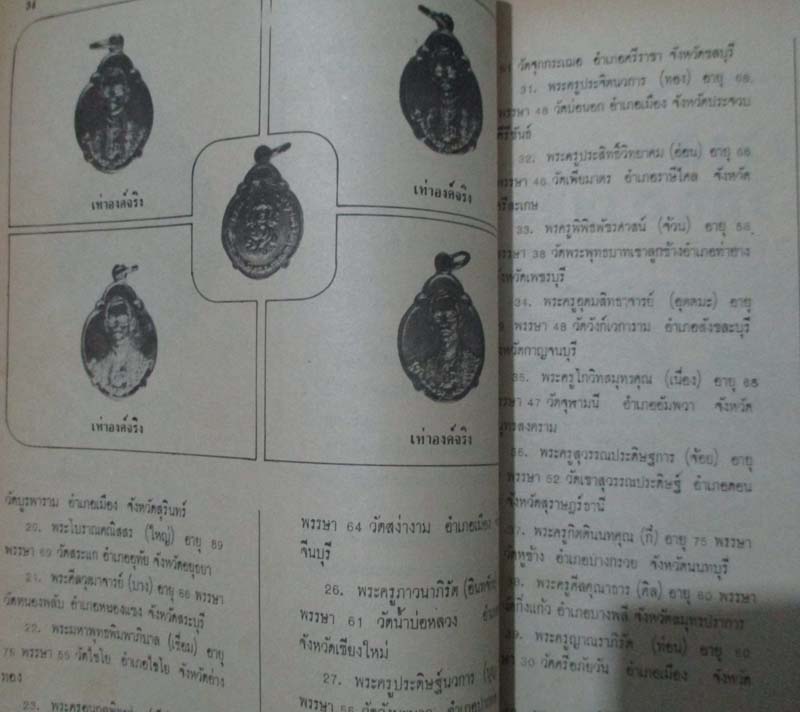 34
เท่าองค์จริง
เท่าองค์จริง
เท่าองค์จริง
เท่าองค์จริง
วัดบูรพาราม อำเภอเมือง จังหวัดสุรินทร์
20. พระโบราณคณิสสร (ใหญ่) อายุ 89
พรรษา 69 วัดสระแก อำเภออุทัย จังหวัดอยุธยา
21. พระศีลวุฒาจารย์ (บาง) อายุ 66 พรรษา
วัดหนองพลับ อำเภอหนองแซง จังหวัดสระบุรี
22. พระมหาพุทธพิมพาภิบาล (เชื่อม) อายุ
76 พรรษา 55 วัดไชโย อำเภอไชโย จังหวัดอ่าง
ทอง
23.
พรรษา 64 วัดสง่างาม อำเภอเมือง
จีนบุรี
26. พระครูภาวนาภิรัต (อินทจักร
พรรษา 61 วัดน้ำบ่อหลวง
จังหวัดเชียงใหม่
27. พระครูประดิษฐ์นวการ
พรรษา 56
วัดจุกกระเฌอ อำเภอศรีราชา จังหวัดชลบุรี
31. พระครูประจิตนวการ (ทอง) อายุ 68
พรรษา 48 วัดบ่อนอก อำเภอเมือง จังหวัดประจวบ
คีรีขันธ์
32. พระครูประสิทธิ์วิทยาคม (อ่อน) อายุ 66
พรรษา 46 วัดเพียมาตร อำเภอราษีไศล จังหวัด
ศรีสะเกษ
33. พระครูพิพิธพัชรศาสน์ (จ้วน) อายุ 58
พรรษา 38 วัดพระพุทธบาทเขาลูกช้างอำเภอท่ายาง
จังหวัดเพชรบุรี
34. พระครูอุดมสิทธาจารย์ (อุตตมะ) อายุ
พรรษา 48 วัดวังก์เวการาม อำเภอสังขละบุรี
จังหวัดกาญจนบุรี
35. พระครูโกวิทสมุทรคุณ (เนื่อง) อายุ 68
พรรษา 47 วัดจุฬามนี อำเภออัมพวา จังหวัด
สมุทรสงคราม
36. พระครูสุวรรณประดิษฐการ (จ้อย) อายุ
พรรษา 52 วัดเขาสุวรรณประดิษฐ์ อำเภอดอน
จังหวัดสุราษฎร์ธานี
37. พระครูกิตตินนทคุณ (กี๋) อายุ 75 พรรษา
วัดหูช้าง อำเภอบางกรวย จังหวัดนนทบุรี
38. พระครูศีลคุณาธาร (ศิล) อายุ 60 พรรษา
วัดกิ่งแก้ว อำเภอบางพลี จังหวัดสมุทรปราการ
39. พระครูญาณราภิรัต (ท่อน) อายุ 50
พรรษา 30 วัดศรีอภัยวัน อำเภอเมือง จังหวัด